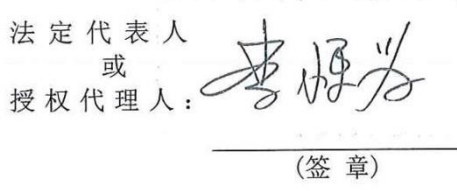 法定代表人
或
授权代理人：李
(签 章)